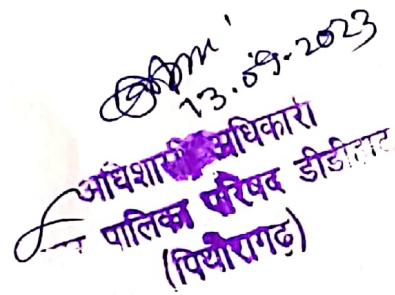 13.09.2023
अधिशासी अधिकारी
पालिका परिषद डीडीहाट
(पिथौरागढ़)